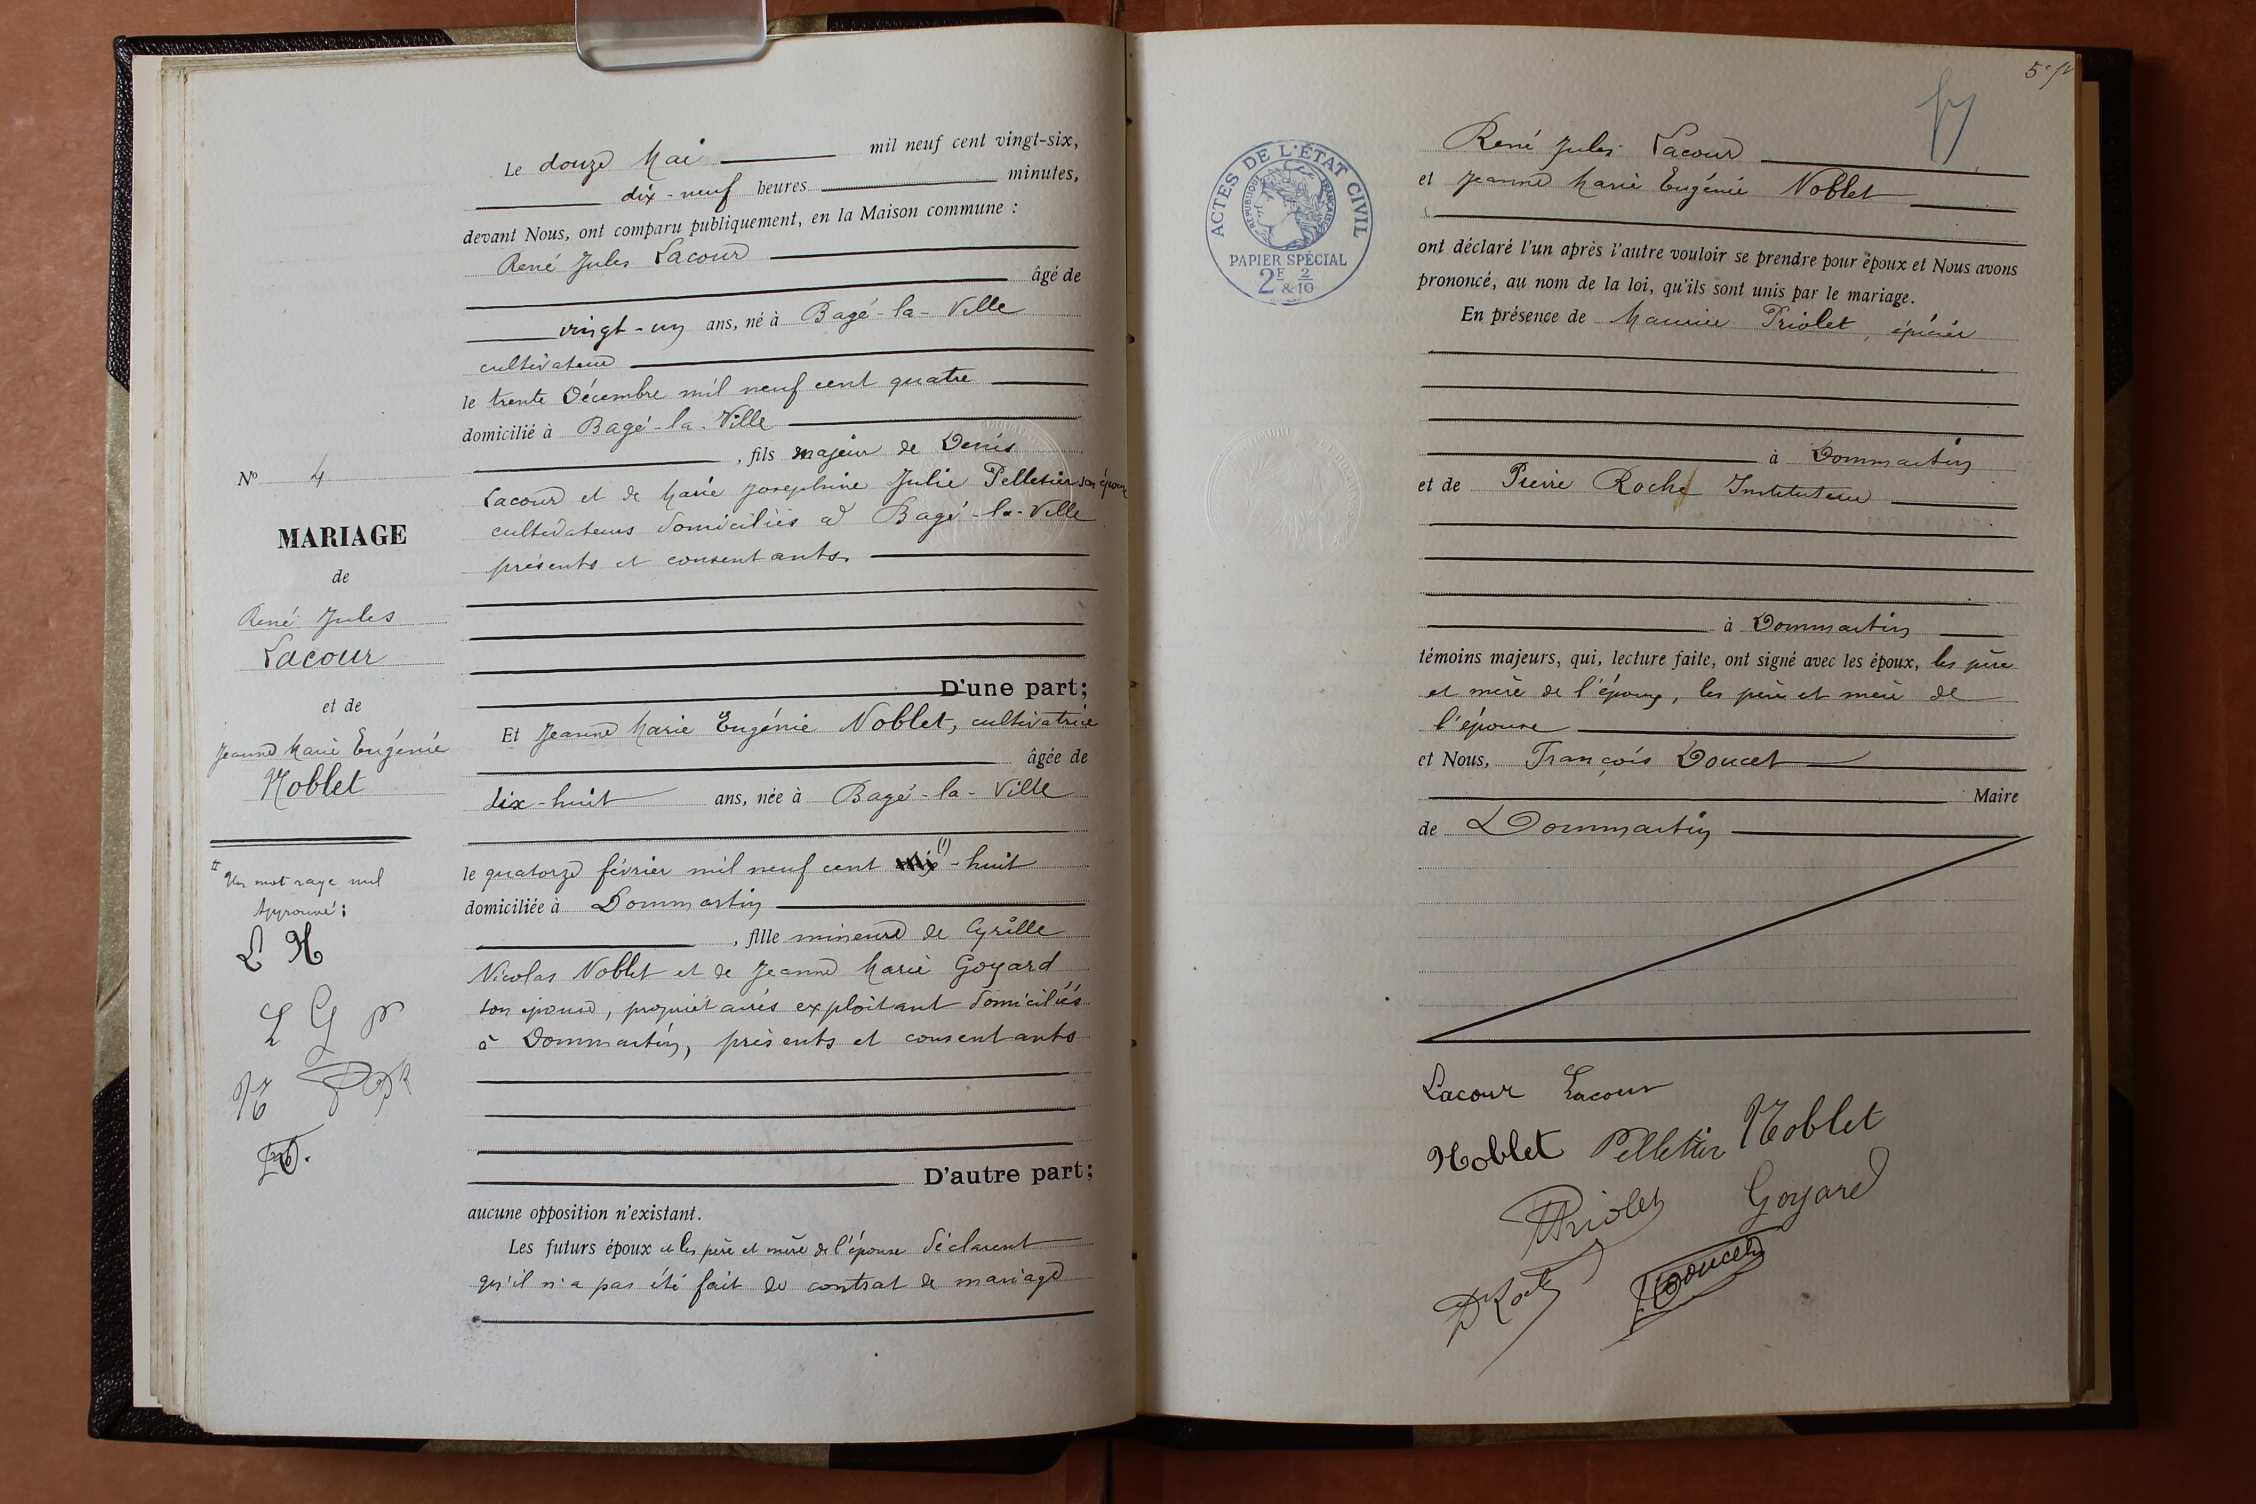 Le douze Mai mil neuf cent vingt-six,
dix-neuf heures minutes,
devant Nous, ont comparu publiquement, en la Maison commune :
René Jules Lacour
âgé de
vingt-un ans, né à Bagé-la-Ville
cultivateur
le trente Décembre mil neuf cent quatre
domicilié à Bagé-la-Ville
, fils majeur de Denis
Lacour et de Marie Joséphine Julie Pelletier son épouse
cultivateurs domiciliés à Bagé-la-Ville
présents et consentants.
D'une part;
Et Jeanne Marie Eugénie Noblet, cultivatrice
âgée de
dix-huit ans, née à Bagé-la-Ville
le quatorze février mil neuf cent (1) -huit
domiciliée à Dommartin
, fille mineure de Cyrille
Nicolas Noblet et de Jeanne Marie Goyard
son épouse, propriétaires exploitant domiciliés
à Dommartin, présents et consentants
D'autre part;
aucune opposition n'existant.
Les futurs époux et les père et mère de l'épouse déclarent
qu'il n'a pas été fait de contrat de mariage
N° 4
MARIAGE
de
René Jules
Lacour
et de
Jeanne Marie Eugénie
Noblet
Un mot rayé nul
Approuvé :
L N
L G P
N
PR
5
René Jules Lacour
et Jeanne Marie Eugénie Noblet
ont déclaré l'un après l'autre vouloir se prendre pour époux et Nous avons
prononcé, au nom de la loi, qu'ils sont unis par le mariage.
En présence de Maurice Priolet, épicier
à Dommartin
et de Pierre Roche Instituteur
à Dommartin
témoins majeurs, qui, lecture faite, ont signé avec les époux, les père
et mère de l'époux, les père et mère de
l'épouse
et Nous, François Doucet
Maire
de Dommartin
Lacour Lacour
Noblet Pelletier Noblet
Priolet Goyard
P Roche Doucet
ACTES DE L'ÉTAT CIVIL
RÉPUBLIQUE FRANÇAISE
PAPIER SPÉCIAL
2F & 2/10